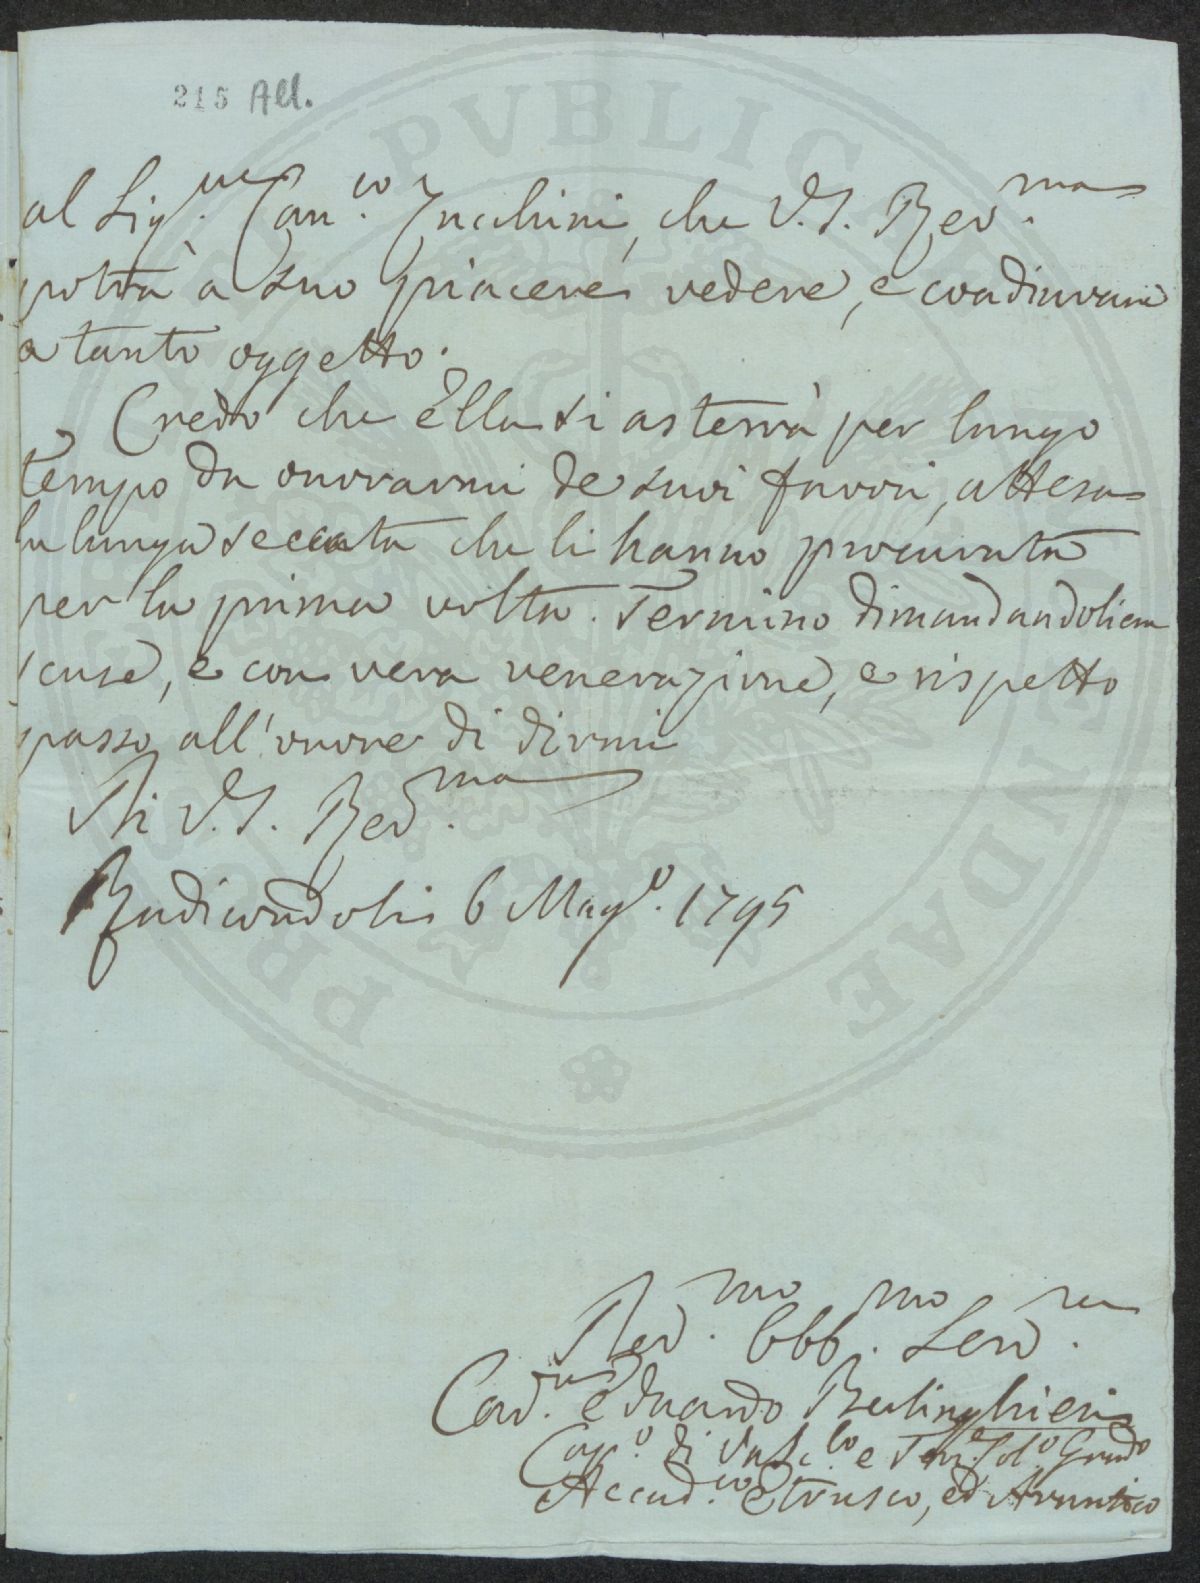 215 All.
al Sig.re Can.co Zucchini, che V.S. Rev.ma
potrà a suo piacere vedere, e coadiuvare
a tanto oggetto.
Credo che Ella si asterrà per lungo
tempo da onorarmi de suoi favori, attesa
la lunga seccata che li hanno procurata
per la prima volta. Termino dimandandoliene
scuse, e con vera venerazione, e rispetto
passo all'onore di dirmi
Di V.S. Rev.ma
Radicondoli 6 Mag.o 1795
Dev.mo Obb.mo Serv.re
Cav.re Eduardo Berlinghieri
Cap.o di Vasc.lo e Ten.e Col.o Grad.o
Accad.co Etrusco, ed
PVBLIC